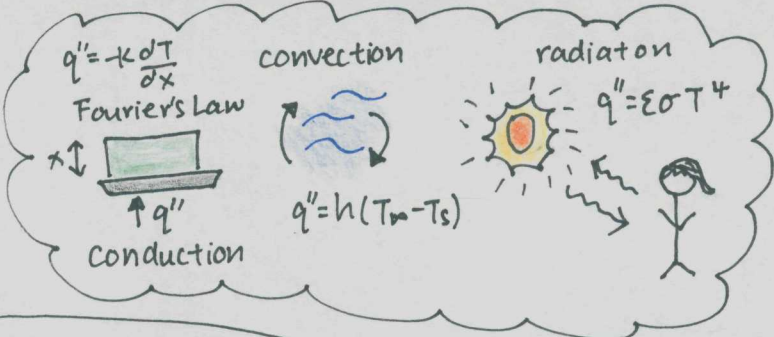 q"=-k dT/dx
Fourier's Law
x
q"
conduction
convection
q"=h(T∞-Ts)
radiaton
q"=εσT⁴